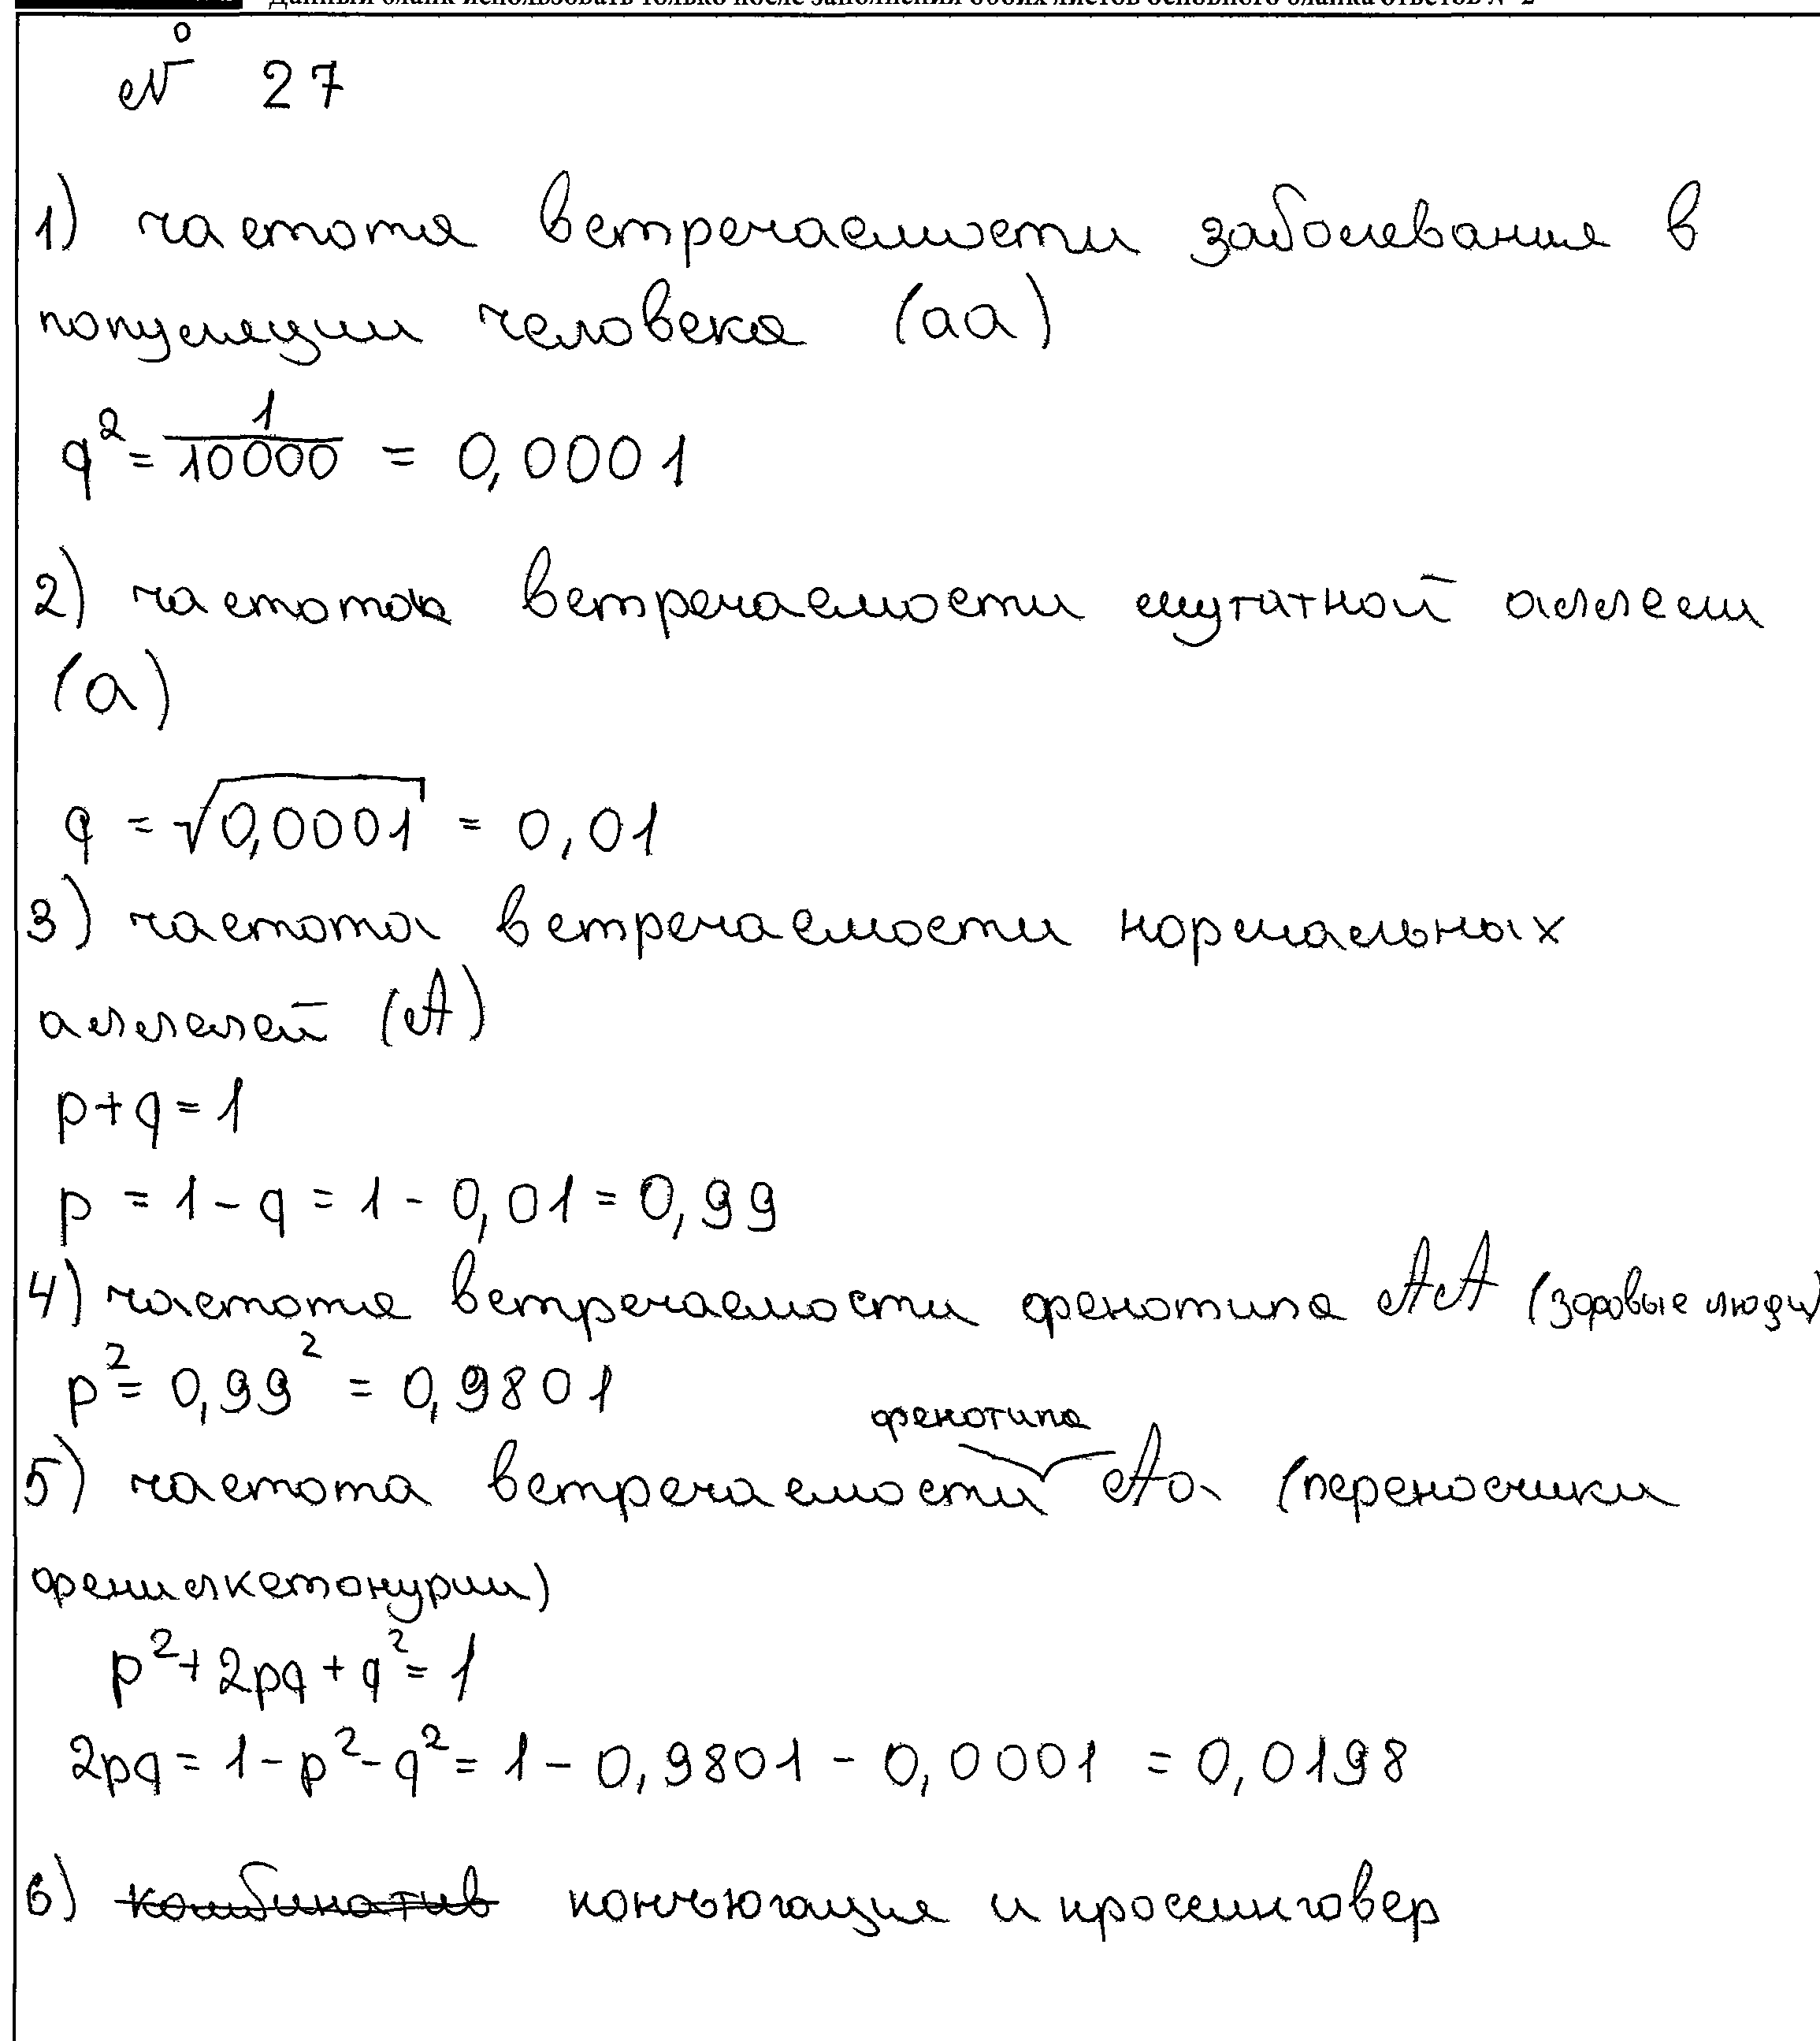 Данный бланк использовать только после заполнения обоих листов основного бланка ответов № 2
№ 27
1) частота встречаемости заболевания в
популяции человека (аа)
q² = 1/10000 = 0,0001
2) частота встречаемости мутатной аллели
(а)
q = √0,0001 = 0,01
3) частота встречаемости нормальных
аллелей (А)
p+q=1
p = 1 - q = 1 - 0,01 = 0,99
4) частота встречаемости фенотипа АА (здоровые люди)
p² = 0,99² = 0,9801
фенотипа
5) частота встречаемости Аа (переносчики
фенилкетонурии)
p² + 2pq + q² = 1
2pq = 1 - p² - q² = 1 - 0,9801 - 0,0001 = 0,0198
6) комбинатив конъюгация и кроссинговер